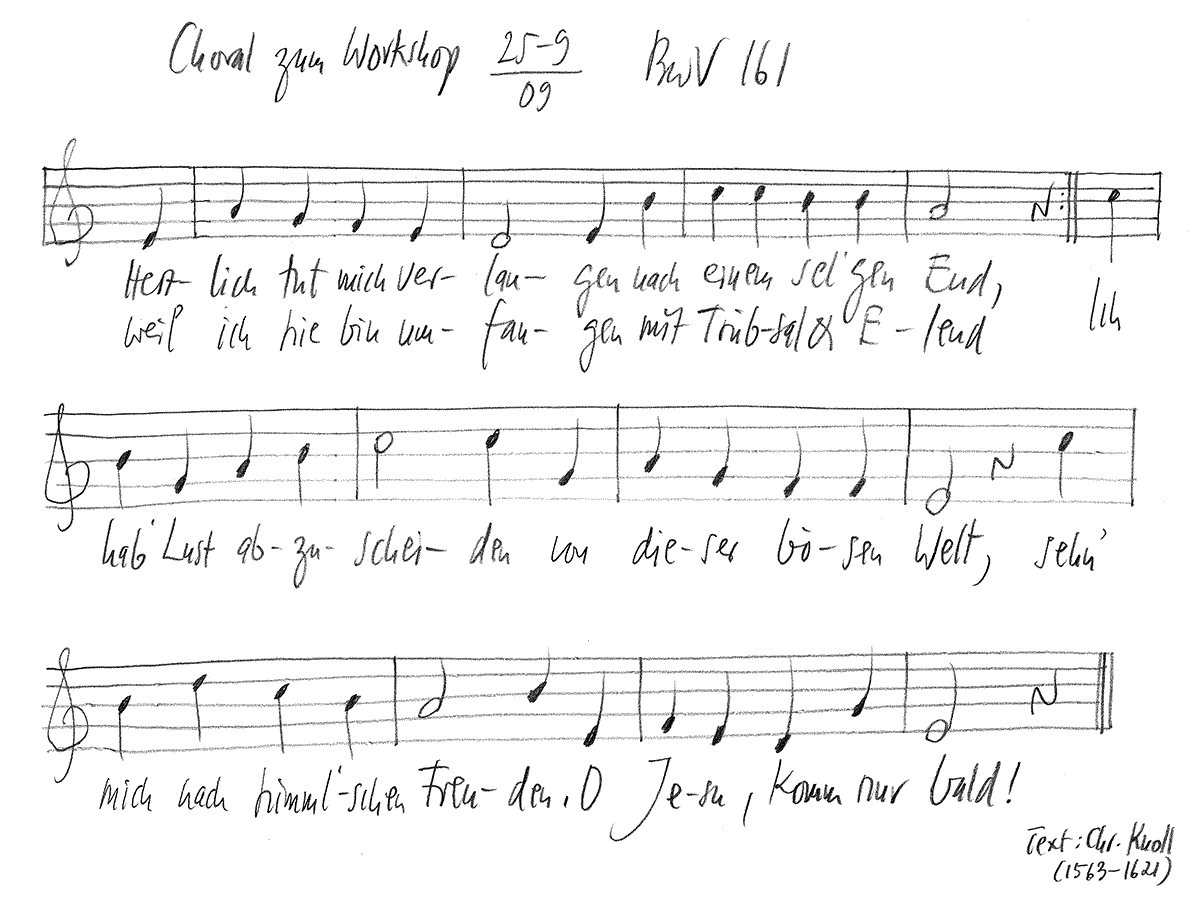 Choral zum Workshop 25-9/09 BWV 161
Herz- lich tut mich ver- lan- gen nach einem sel'gen End, Ich
weil ich hie bin um- fan- gen mit Trüb-sal & E-lend
hab' Lust ab-zu-schei- den von die-ser bö-sen Welt, sehn'
mich nach himml'-schen Freu-den. O Je-su, komm nur bald!
Text: Chr. Knoll
(1563-1621)